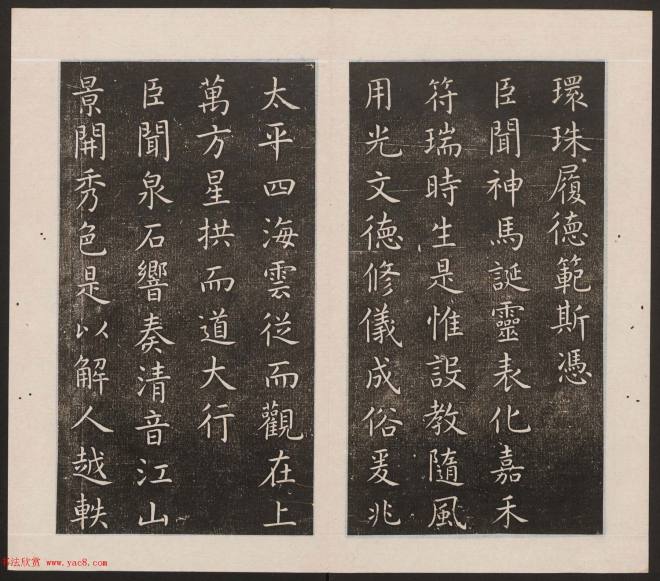 環珠履德範斯憑
臣聞神馬誕靈表化嘉禾
符瑞時生是惟設教隨風
用光文德修儀成俗爰兆
太平四海雲從而觀在上
萬方星拱而道大行
臣聞泉石響奏清音江山
景開秀色是以解人越軼
书法欣赏 www.yac8.com